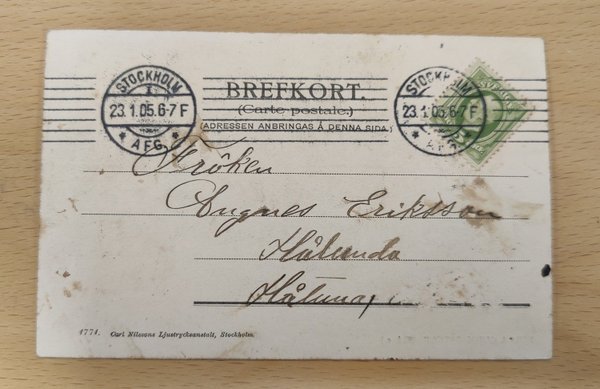 STOCKHOLM
1
23.1.05.6-7F
AFG.
BREFKORT.
(Carte postale.)
(ADRESSEN ANBRINGAS Å DENNA SIDA)
STOCKHOLM
1
23.1.05.6-7F
AFG.
Fröken
Augnes Eriksson
Hålunda
4774. Carl Nilssons Ljustrycksanstalt, Stockholm.